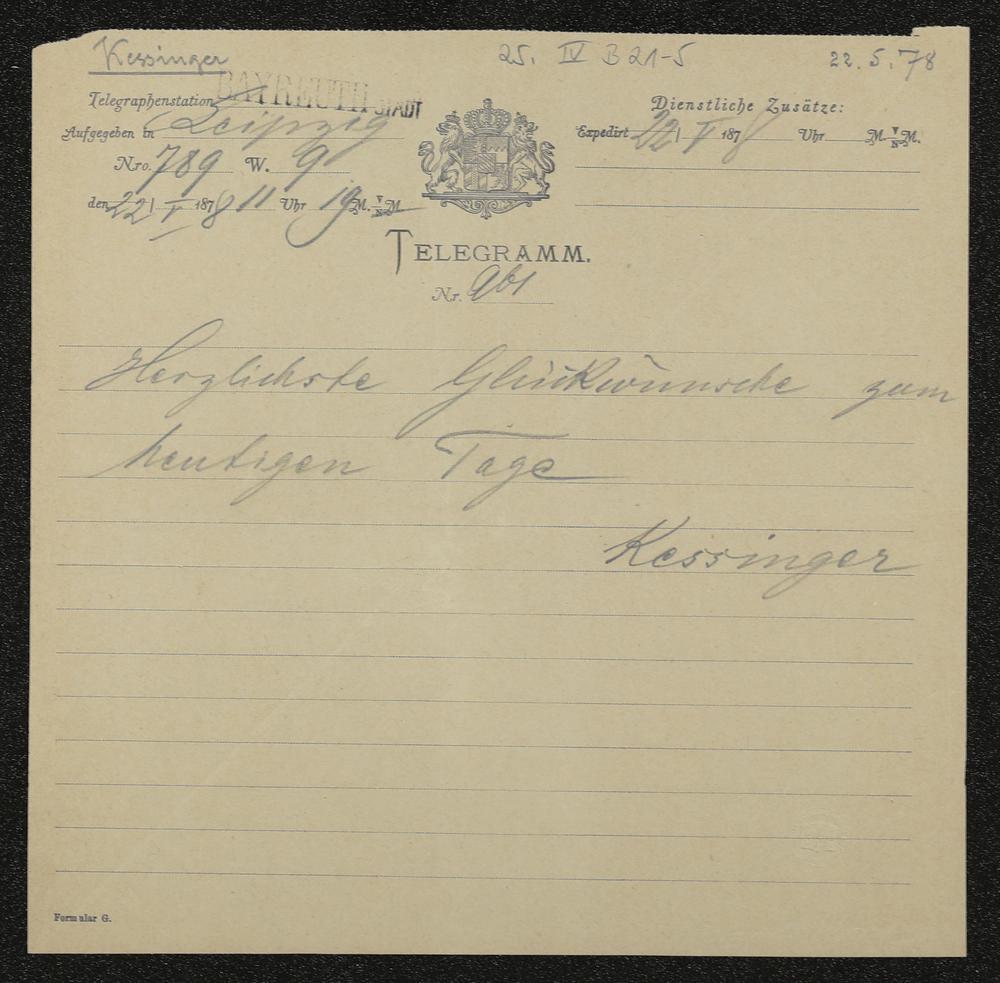 Kessinger
25. IV B 21-5
22.5.78
Telegraphenstation BAYREUTH STADT
Aufgegeben in Leipzig
Nro. 789 W. 9
den 22/V 1878 11 Uhr 19 M. V/N M
Dienstliche Zusätze:
Expedirt 22/V 1878 Uhr M. V/N M.
TELEGRAMM.
Nr. 961
Herzlichste Glückwünsche zum
heutigen Tage
Kessinger
Formular G.